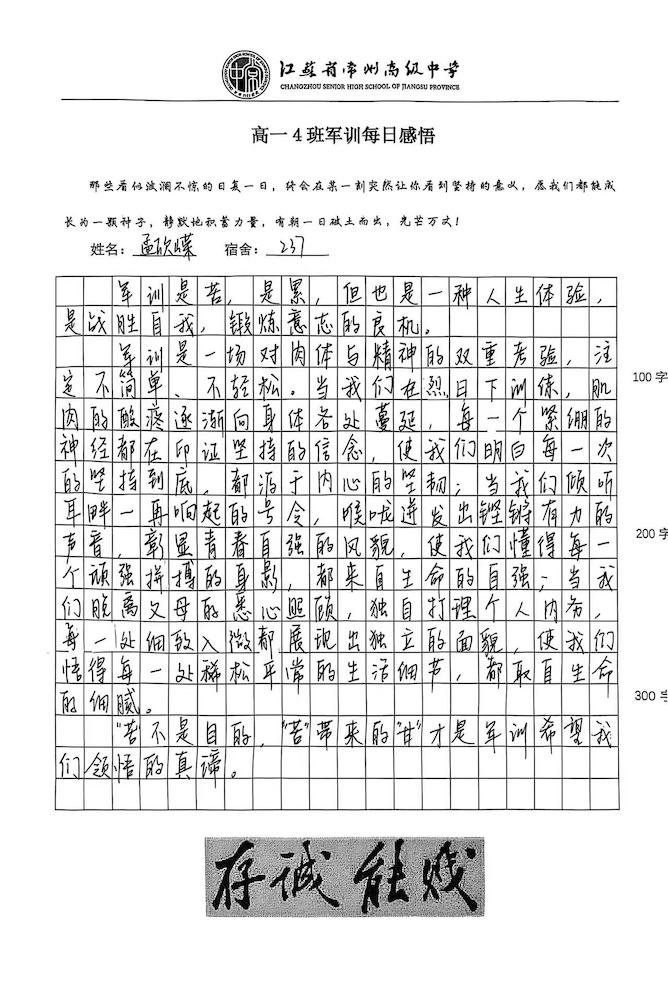 江苏省常州高级中学
CHANGZHOU SENIOR HIGH SCHOOL OF JIANGSU PROVINCE
高一4班军训每日感悟
那些看似波澜不惊的日复一日，终会在某一刻突然让你看到坚持的意义，愿我们都能成
长为一颗种子，静默地积蓄力量，有朝一日破土而出，光芒万丈！
姓名：孟欣嵘 宿舍：237
军训是苦，是累，但也是一种人生体验，
是战胜自我，锻炼意志的良机。
军训是一场对肉体与精神的双重考验，注
定不简单、不轻松。当我们在烈日下训练，肌
100字
肉的酸疼逐渐向身体各处蔓延，每一个紧绷的
神经都在印证坚持的信念，使我们明白每一次
的坚持到底，都源于内心的坚韧；当我们倾听
耳畔一再响起的号令，喉咙迸发出铿锵有力的
200字
声音，彰显青春自强的风貌，使我们懂得每一
个顽强拼搏的身影，都来自生命的自强；当我
们脱离父母的悉心照顾，独自打理个人内务，
每一处细致入微都展现出独立的面貌，使我们
悟得每一处稀松平常的生活细节，都取自生命
的细腻。
300字
“苦不是目的，“苦”带来的“甘”才是军训希望我
们领悟的真谛。
存诚能贱